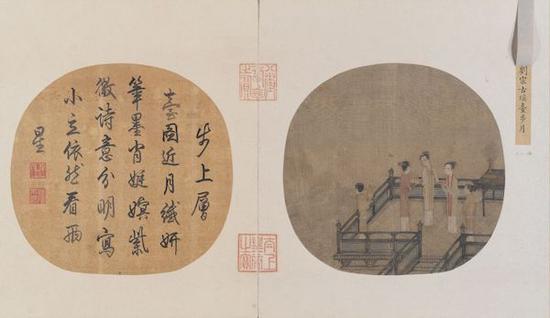 步上層
臺圖近月纖妍
筆墨肖娗嫇紫
微詩意分明寫
小立依然看兩
星
劉宗古瑤臺步月